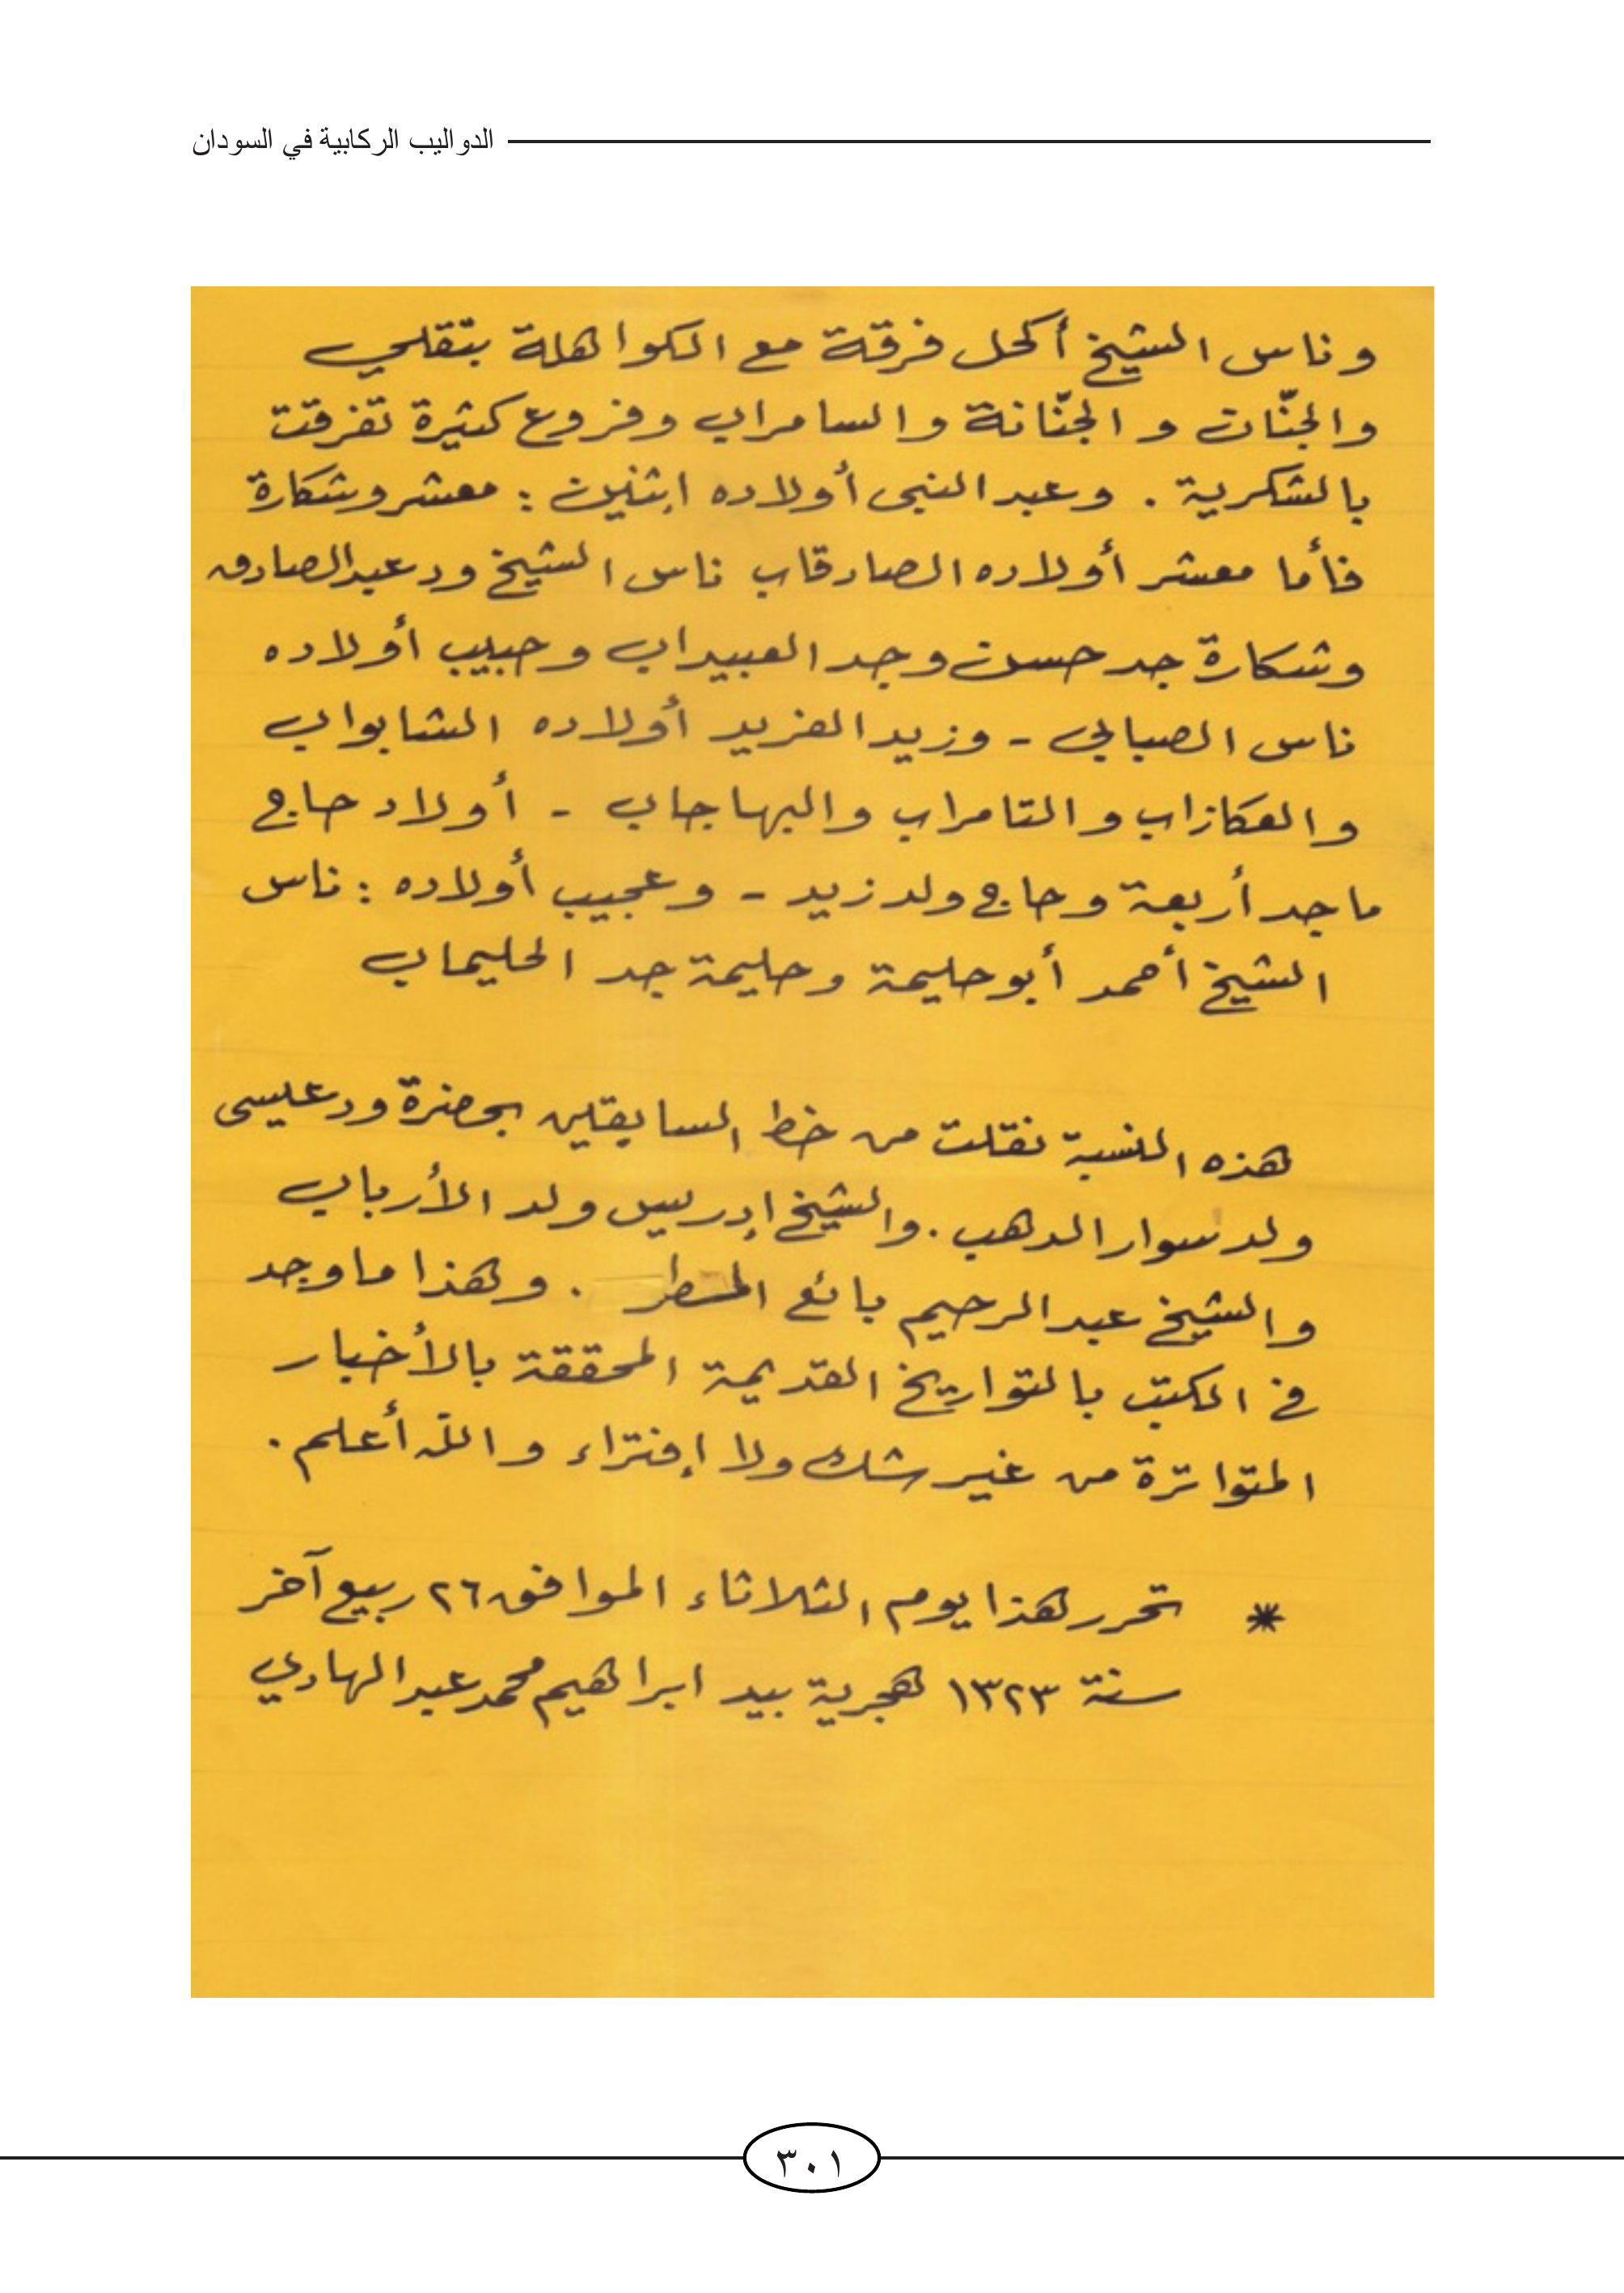 الدواليب الركابية في السودان
وناس الشيخ أكحل فرقة مع الكواهلة بتقلي
والجنّات و الجنّانة والسامراب وفروع كثيرة تفرقت
بالشكرية . وعبد النبى أولاده اثنين : معشر وشكارة
فأما معشر أولاده الصادقاب ناس الشيخ ود عبد الصادق
وشكارة جد حسن وجد العبيداب وحبيب أولاده
ناس الصبابي - وزيد الفريد أولاده الشابواب
والعكازاب والتامراب والبهاجاب - أولاد حاج
ماجد أربعة وحاج ولد زيد - وعجيب أولاده : ناس
الشيخ أحمد أبو حليمة وحليمة جد الحليماب
هذه النسبة نقلت من خط السابقين بحضرة ود عيسى
ولد سوار الدهب . والشيخ إدريس ولد الأرباب
والشيخ عبد الرحيم بائع المطر . وهذا ما وجد
في الكتب بالتواريخ القديمة المحققة بالأخبار
المتواترة من غير شك ولا إفتراء والله أعلم .
* تحرر هذا يوم الثلاثاء الموافق ٢٦ ربيع آخر
سنة ١٣٢٣ هجرية بيد ابراهيم محمد عبد الهادي
٣٠١